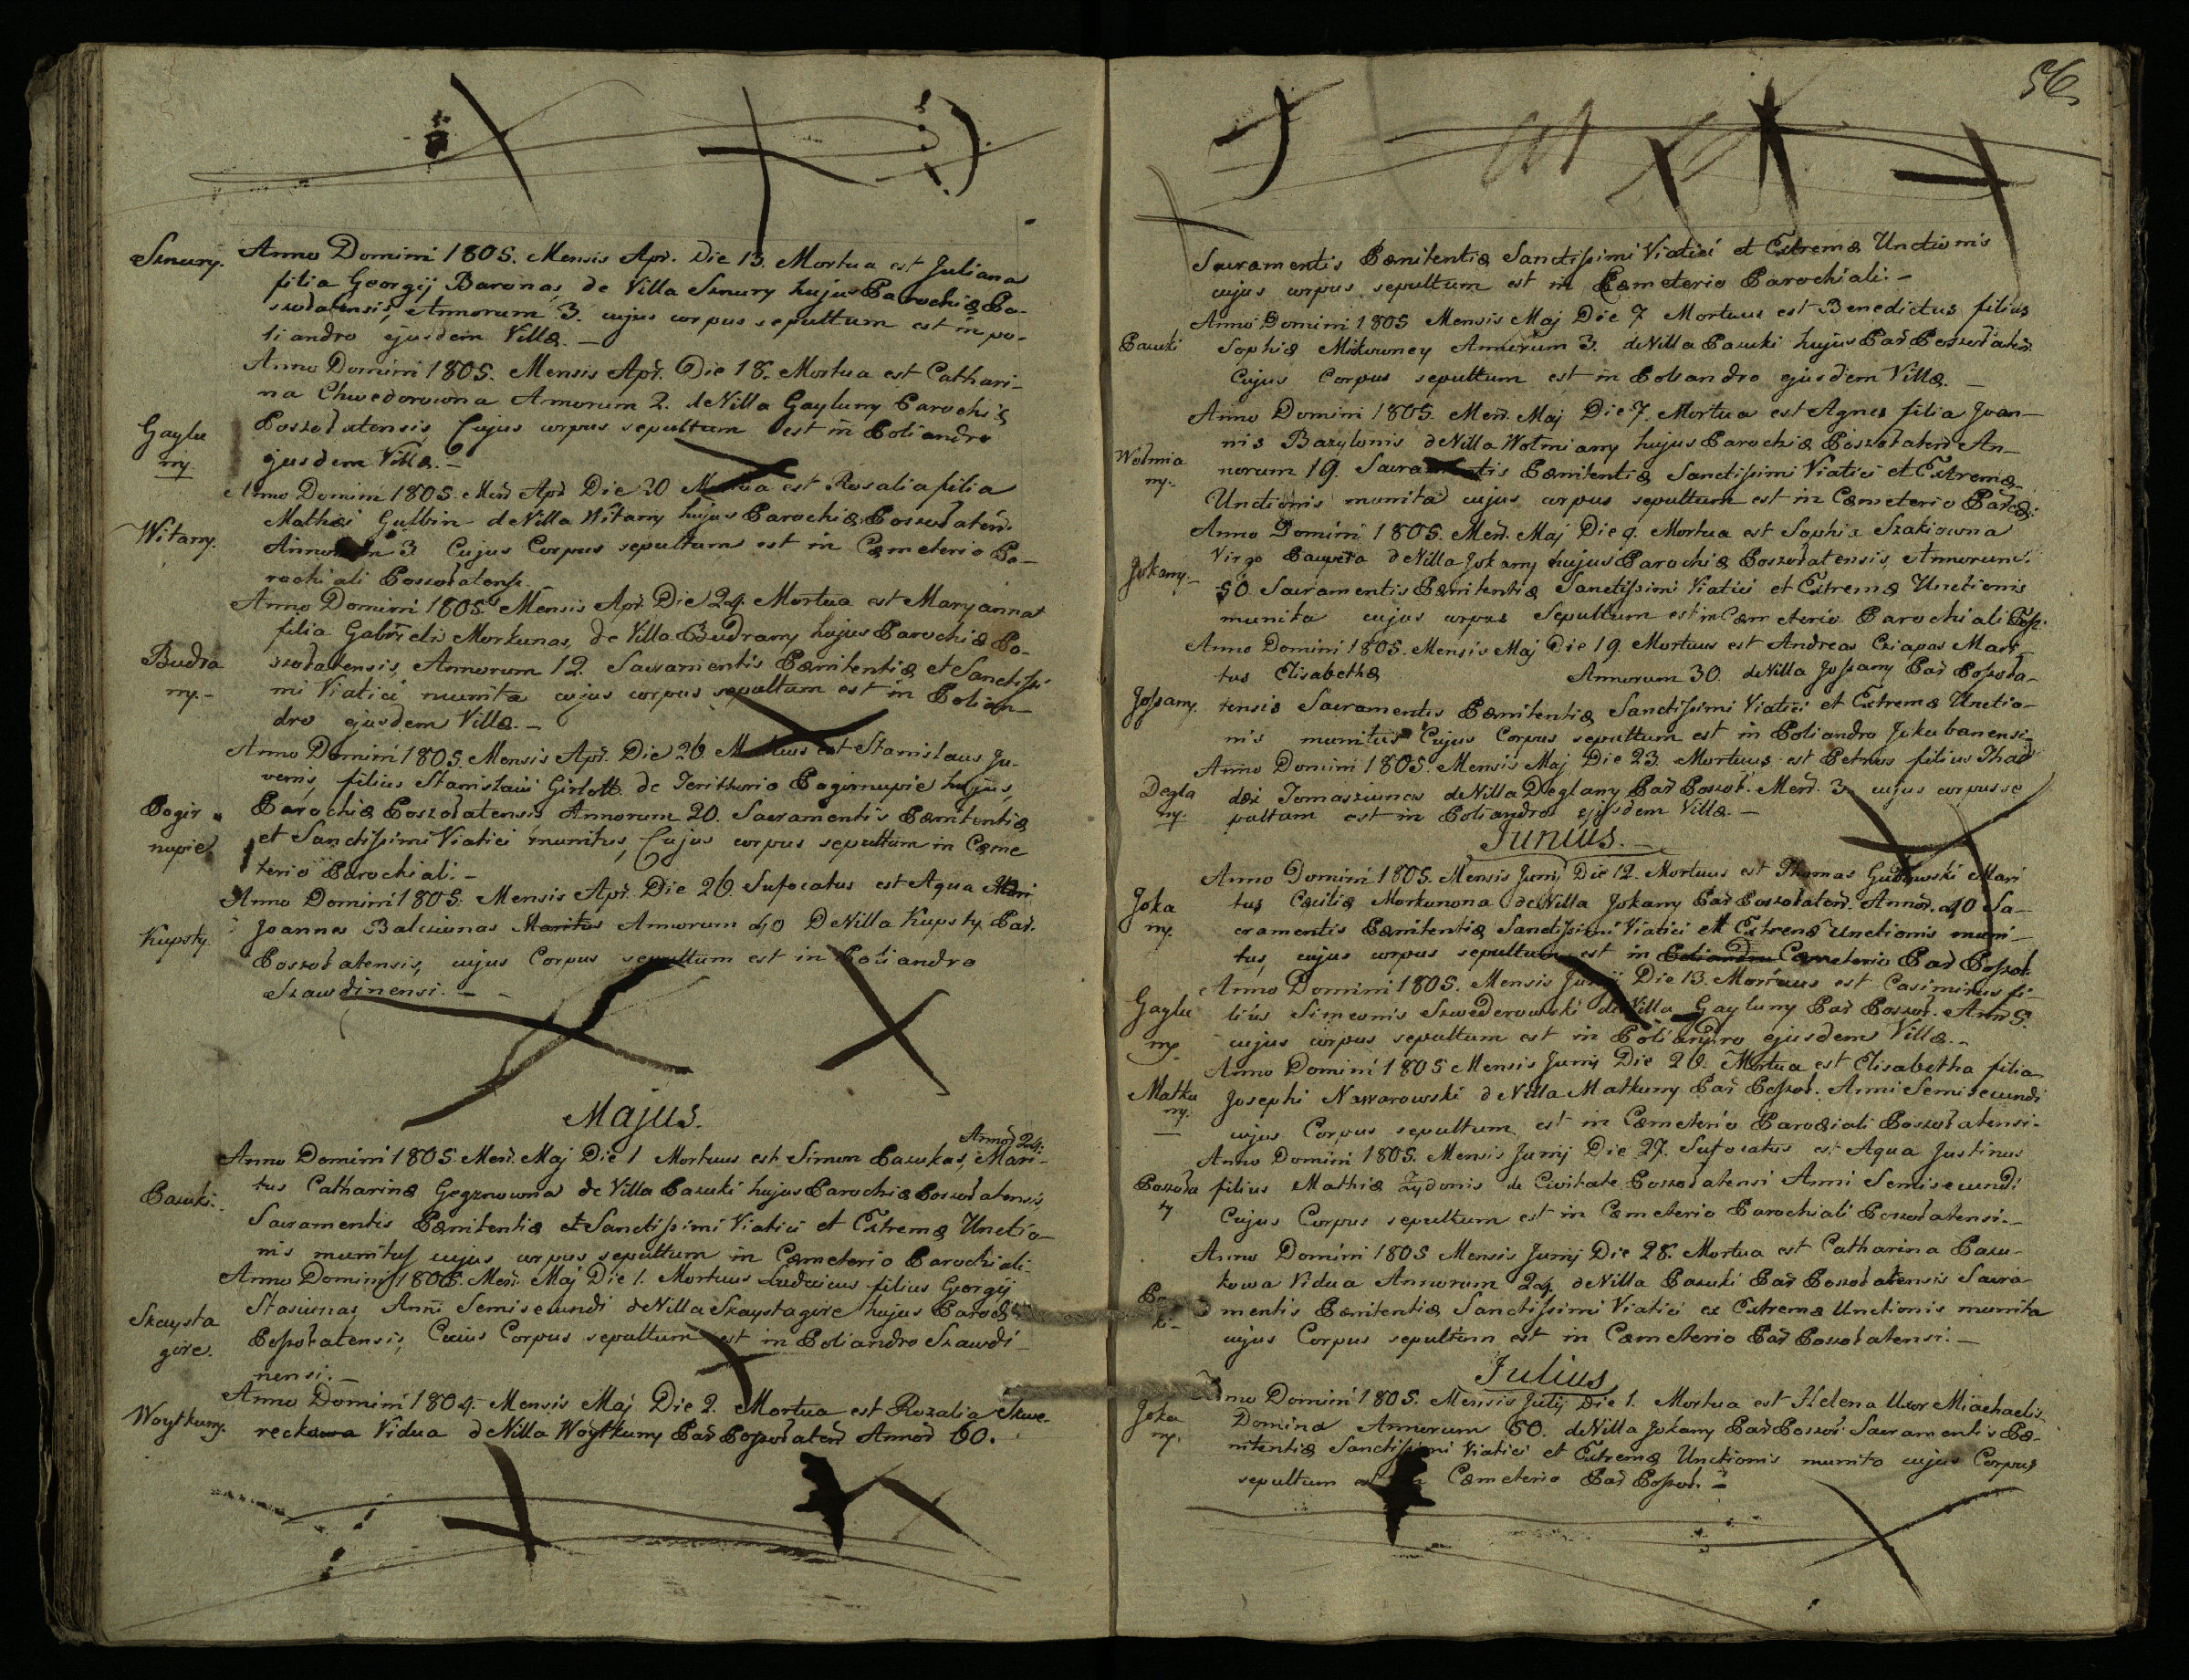 Sznury.
Anno Domini 1805. Mensis Apr. Die 13. Mortua est Juliana
filia Georgij Baronas, de Villa Sznury hujus Parochiæ Po-
szołatensis, Annorum 3. cujus corpus sepultum est in po-
liandro ejusdem Villæ. —
Gaylu
ny.
Anno Domini 1805. Mensis Apr. Die 18. Mortua est Cathari-
na Chwedorowna Annorum 2. de Villa Gayluny Parochiæ
Poszołatensis, Cujus corpus sepultum est in Poliandro
ejusdem Villæ. —
Witany.
Anno Domini 1805. Men. Apr. Die 20 Mortua est Rosalia filia
Mathæi Gulbin de Villa Witany hujus Parochiæ Poszołaten.
Annorum 3 Cujus Corpus sepultum est in Cæmeterio Pa-
rochiali Poszołatensi. —
Budra
ny. -
Anno Domini 1805. Mensis Apr. Die 24. Mortua est Maryanna
filia Gabrielis Morkunas, de Villa Budrany hujus Parochiæ Po-
szołatensis, Annorum 12. Sacramentis Pænitentiæ et Sanctissi-
mi Viatici munita cujus corpus sepultum est in Polian-
dro ejusdem Villæ. —
Pogir
nupie
Anno Domini 1805. Mensis Apr. Die 26 Mortuus est Stanislaus Ju-
venis, filius Stanislai Girlott de Teritturio Pogirnupie hujus,
Parochiæ Poszołatensis Annorum 20. Sacramentis Pænitentiæ
et Sanctissimi Viatici munitus, Cujus corpus sepultum in Cæme
terio Parochiali. —
Kupsty.
Anno Domini 1805. Mensis Apr. Die 26. Sufocatus est Aqua
Joannes Balciunas Maritus Annorum 40 De Villa Kupsty Par.
Poszołatensis, cujus Corpus sepultum est in Poliandro
Szawdinensi. —
Majus.
Annor 24.
Pasuki.
Anno Domini 1805. Men. Maj Die 1 Mortuus est Simon Pasukas, Mari-
tus Catharinæ Gegznowna de Villa Pasuki hujus Parochiæ Poszołatensis,
Sacramentis Pænitentiæ et Sanctissimi Viatici et Extremæ Unctio-
nis munitus cujus corpus sepultum in Cæmeterio Parochiali.
Szaysta
gire.
Anno Domini 1805. Men. Maj Die 1. Mortuus Ludvicus filius Georgij
Stasiunas, Anni Semisecundi de Villa Szaystagire hujus Paroch
Poszołatensis, Cuius Corpus sepultum est in Poliandro Szawdi-
nensi. —
Woytkuny.
Anno Domini 1804. Mensis Maj Die 2. Mortua est Rozalia Szwe-
reckowa Vidua de Villa Woytkuny Par Poszołaten Annor 60.
56
Sacramentis Pænitentiæ Sanctissimi Viatici et Extremæ Unctionis
cujus corpus sepultum est in Cæmeterio Parochiali. —
Pasuki
Anno Domini 1805 Mensis Maj Die 7 Mortuus est Benedictus filius
Sophiæ Annorum 3. de Villa Pasuki hujus Par Poszołaten.
Cujus Corpus sepultum est in Poliandro ejusdem Villæ. —
Wolmia
ny.
Anno Domini 1805. Men. Maj Die 7. Mortua est Agnes filia Joan-
nis Bazylonis de Villa Wolmiany hujus Parochiæ Poszołaten An-
norum 19. Sacramentis Pænitentiæ Sanctissimi Viatici et Extremæ
Unctionis munita cujus corpus sepultum est in Cæmeterio Paroch:
Jokany.
Anno Domini 1805. Men. Maj Die 9. Mortua est Sophia Szakiowna
Virgo Paupera de Villa Jokany hujus Parochiæ Poszołatensis, Annorum
50 Sacramentis Pænitentiæ Sanctissimi Viatici et Extremæ Unctionis
munita cujus corpus Sepultum est in Cæmeterio Parochiali Posz:
Jossany.
Anno Domini 1805. Mensis Maj Die 19. Mortuus est Andreas Cziapas Mari-
tus Elisabethæ Annorum 30. de Villa Jossany Par Poszoła-
tensis Sacramentis Pænitentiæ Sanctissimi Viatici et Extremæ Unctio-
nis munitus Cujus Corpus sepultum est in Poliandro Jokubanensi.
Degla
ny.
Anno Domini 1805. Mensis Maj Die 23. Mortuus est Petrus filius Thad
dæi Tomasziunas de Villa Deglany Par Poszoł. Men. 3. cujus corpus se
pultum est in Poliandro ejusdem Villæ. —
Junius. —
Joka
ny.
Anno Domini 1805. Mensis Junij Die 12. Mortuus est Thomas Mari
tus Cæciliæ Morkunona de Villa Jokany Par Poszołaten. Annor. 40 Sa-
cramentis Pænitentiæ Sanctissimi Viatici et Extremæ Unctionis muni-
tus, cujus corpus sepultum est in Poliandro Cæmeterio Par Poszoł.
Gaylu
ny.
Anno Domini 1805. Mensis Junij Die 13. Mortuus est Casimirus fi-
lius Simeonis Szwederowski de Villa Gayluny Par Poszoł. Ann 5.
cujus corpus sepultum est in Poliandro ejusdem Villæ. —
Matku
ny.
Anno Domini 1805 Mensis Junij Die 26. Mortua est Elisabetha filia
Josephi Nawarowski de Villa Matkuny Par Poszoł. Anni Semisecundi
cujus Corpus sepultum est in Cæmeterio Parochiali Poszołatensi.
Poszoła
ty
Anno Domini 1805. Mensis Junij Die 27. Sufocatus est Aqua Justinus
filius Mathiæ Zydonis de Civitate Poszołatensi Anni Semisecundi
Cujus Corpus sepultum est in Cæmeterio Parochiali Poszołatensi. —
ki-
Anno Domini 1805 Mensis Junij Die 28. Mortua est Catharina Pasu-
kowa Vidua Annorum 24. de Villa Pasuki Par Poszołatensis Sacra
mentis Pænitentiæ Sanctissimi Viatici ex Extremæ Unctionis munita
cujus Corpus sepultum est in Cæmeterio Par Poszołatensi. —
Julius
Joka
ny.
Anno Domini 1805. Mensis Julij Die 1. Mortua est Helena Uxor Miachaelis
Domina Annorum 60. de Villa Jokany Par Poszoł Sacramentis Pæ-
nitentiæ Sanctissimi Viatici et Extremæ Unctionis munita cujus Corpus
sepultum est in Cæmeterio Par Poszoł. —